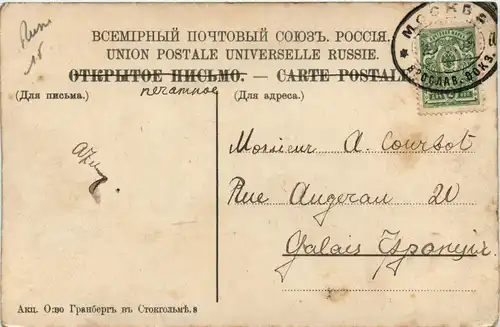 Russ
15
ВСЕМІРНЫЙ ПОЧТОВЫЙ СОЮЗЪ. РОССІЯ.
UNION POSTALE UNIVERSELLE RUSSIE.
ОТКРЫТОЕ ПИСЬМО. — CARTE POSTALE
печатное
(Для письма.)
(Для адреса.)
МОСКВА
ЯРОСЛАВ. ВОКЗ.
Monsieur A. Courbot
Rue Augeran 20
Calais
Акц. О-во Гранбергъ въ Стокгольмѣ. 8